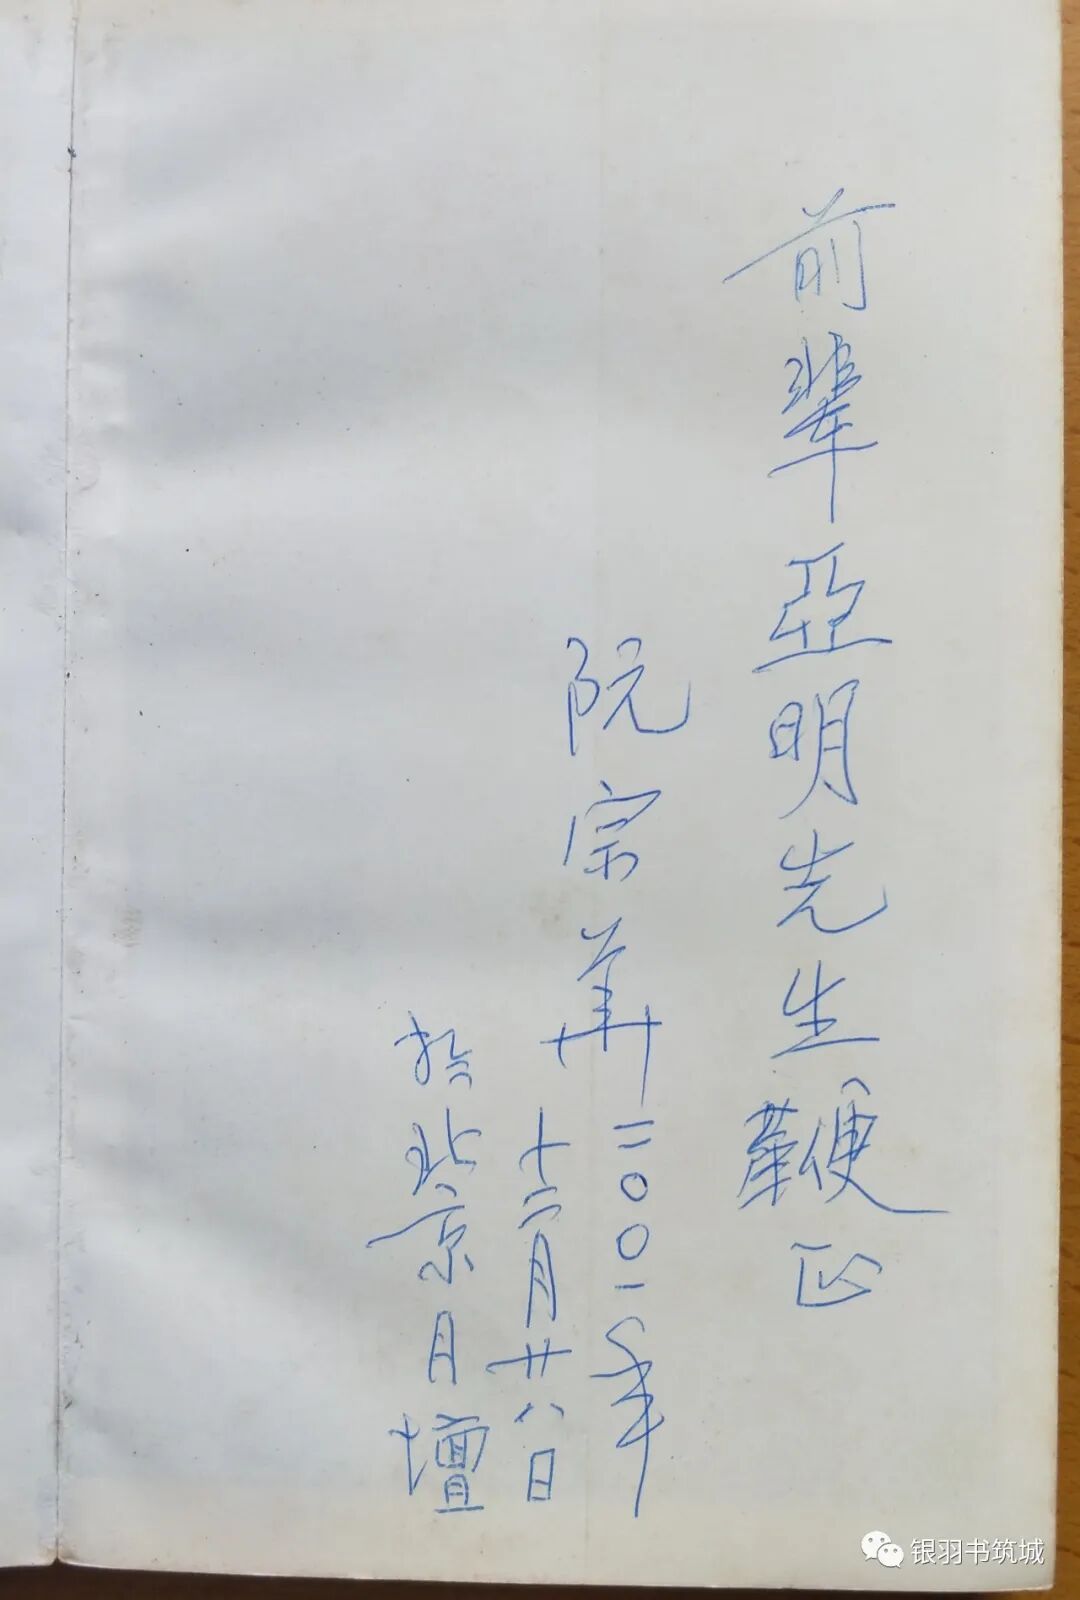 前輩亞明先生鞭正
阮宗華二〇〇一年
十二月廿八日
於北京月壇
银羽书筑城